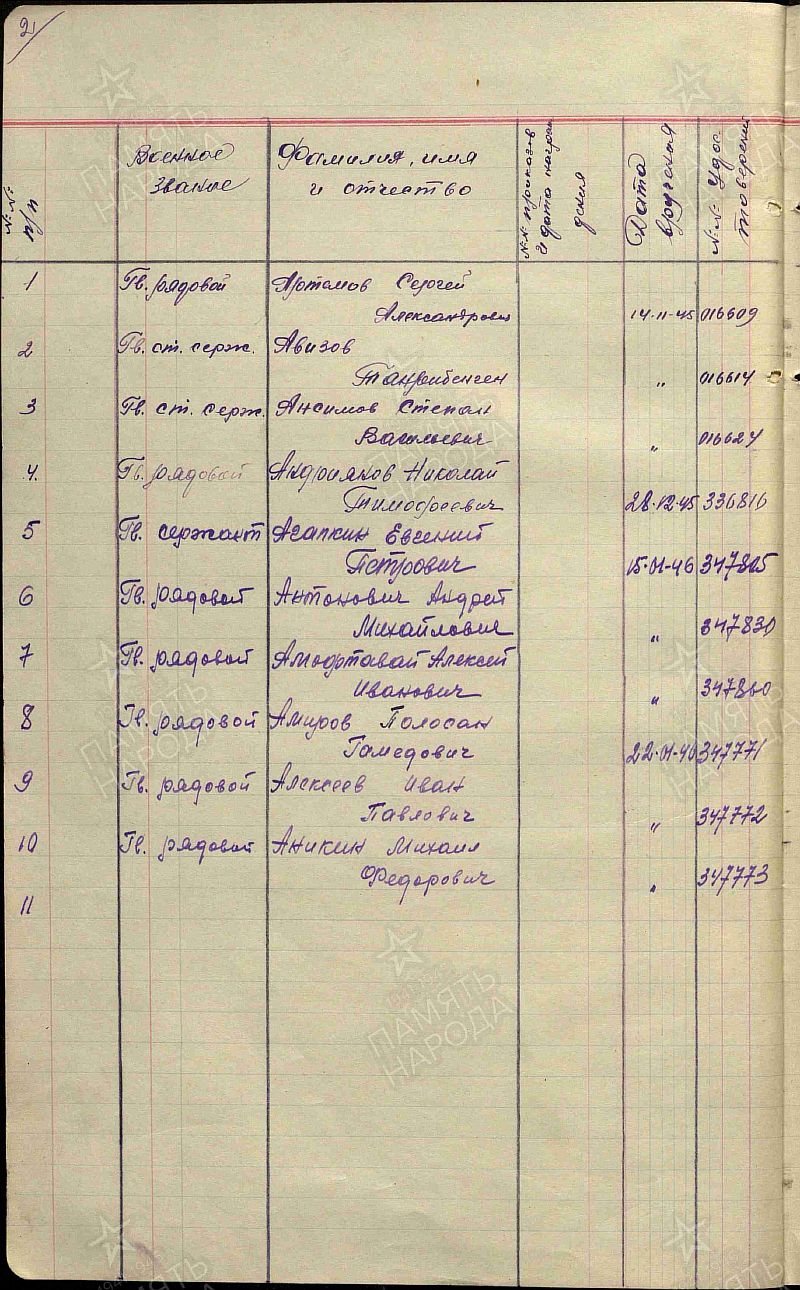 2
№№ п/п
Военное звание
Фамилия, имя и отчество
№№ приказов и дата награждения
Дата вручения
№№ Удостоверений
1 Гв. рядовой Артемов Сергей
Александрович 14-11-45 016609
2 Гв. ст. серж. Авизов
" 016614
3 Гв. ст. серж. Ансимов Степан
Васильевич " 016624
4. Гв. рядовой Андриянов Николай
Тимофеевич 28.12.45 336816
5 Гв. сержант Асапкин Евгений
Петрович 15-01-46 347815
6 Гв. рядовой Антонович Андрей
Михайлович " 347830
7 Гв. рядовой Алексей
Иванович " 347860
8 Гв. рядовой Амиров Полосан
Гамедович 22-01-46 347771
9 Гв. рядовой Алексеев Иван
Павлович " 347772
10 Гв. рядовой Аникин Михаил
Федорович " 347773
11
ПАМЯТЬ НАРОДА